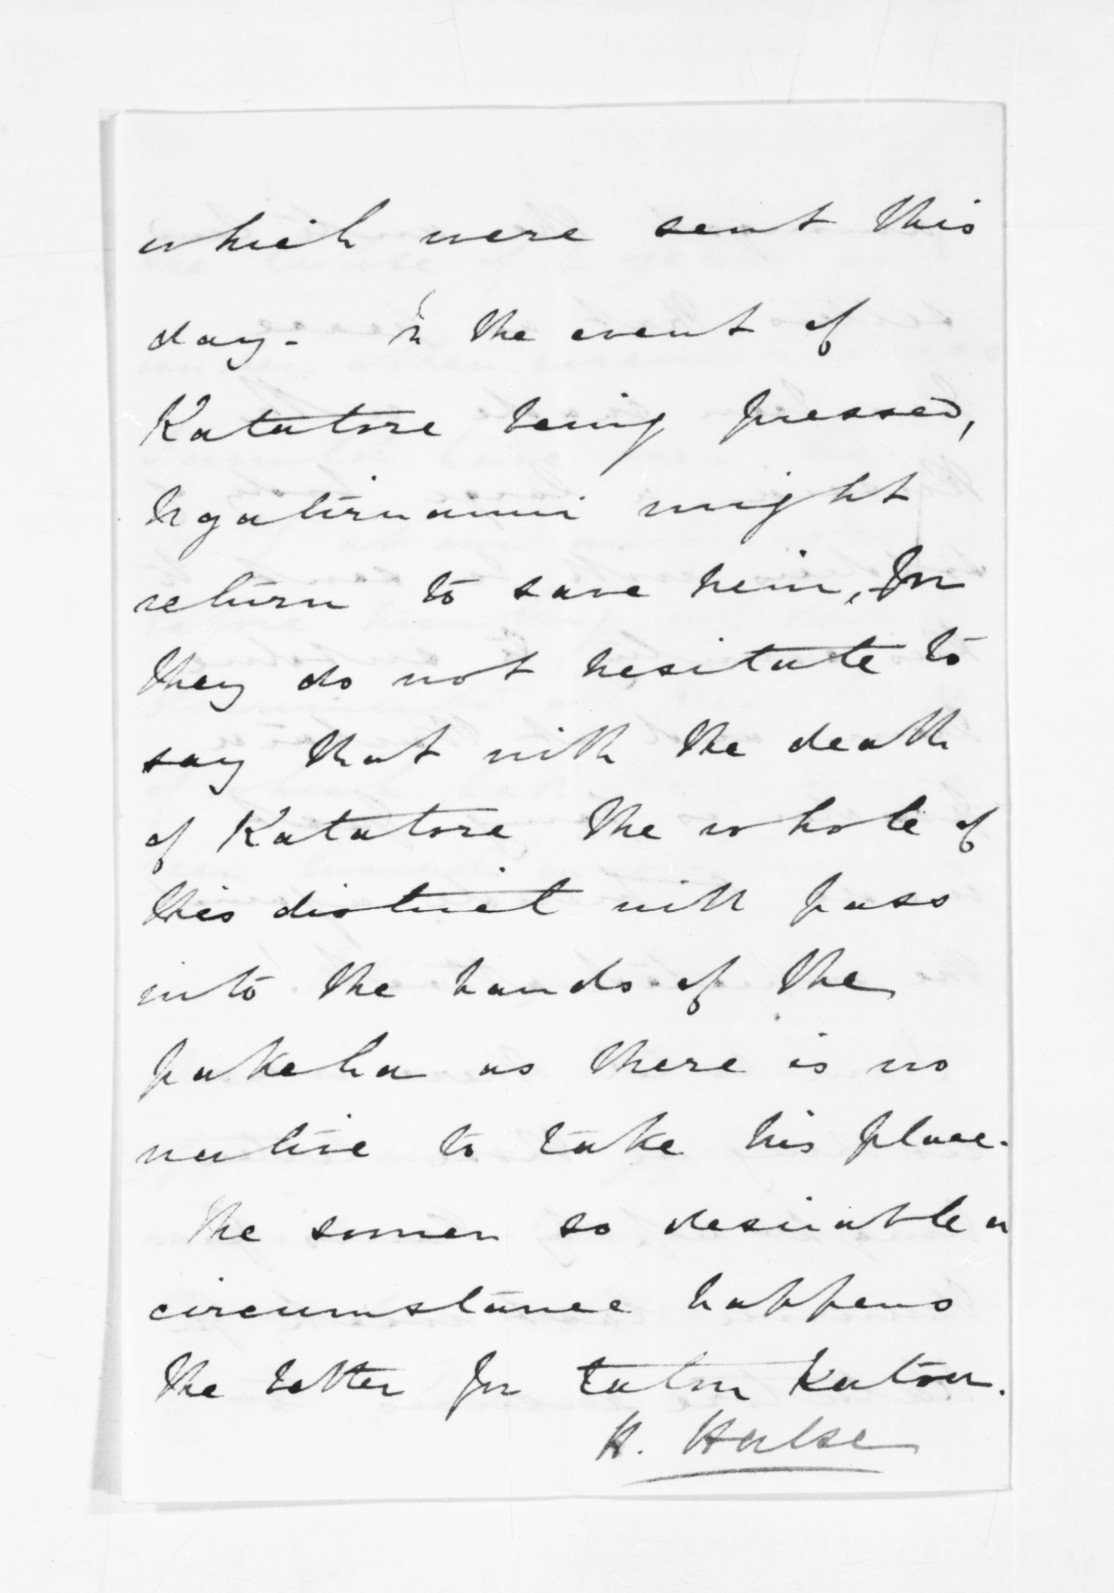 which were sent this
day - In the event of
Katatore being pressed,
Ngatiruanui might
return to save him, for
they do not hesitate to
say that with the death
of Katatore the whole of
this district will pass
into the hands of the
pakeha as there is no
native to take his place.
The sooner so desirable a
circumstance happens
the better for tatou katoa.
H. Halse